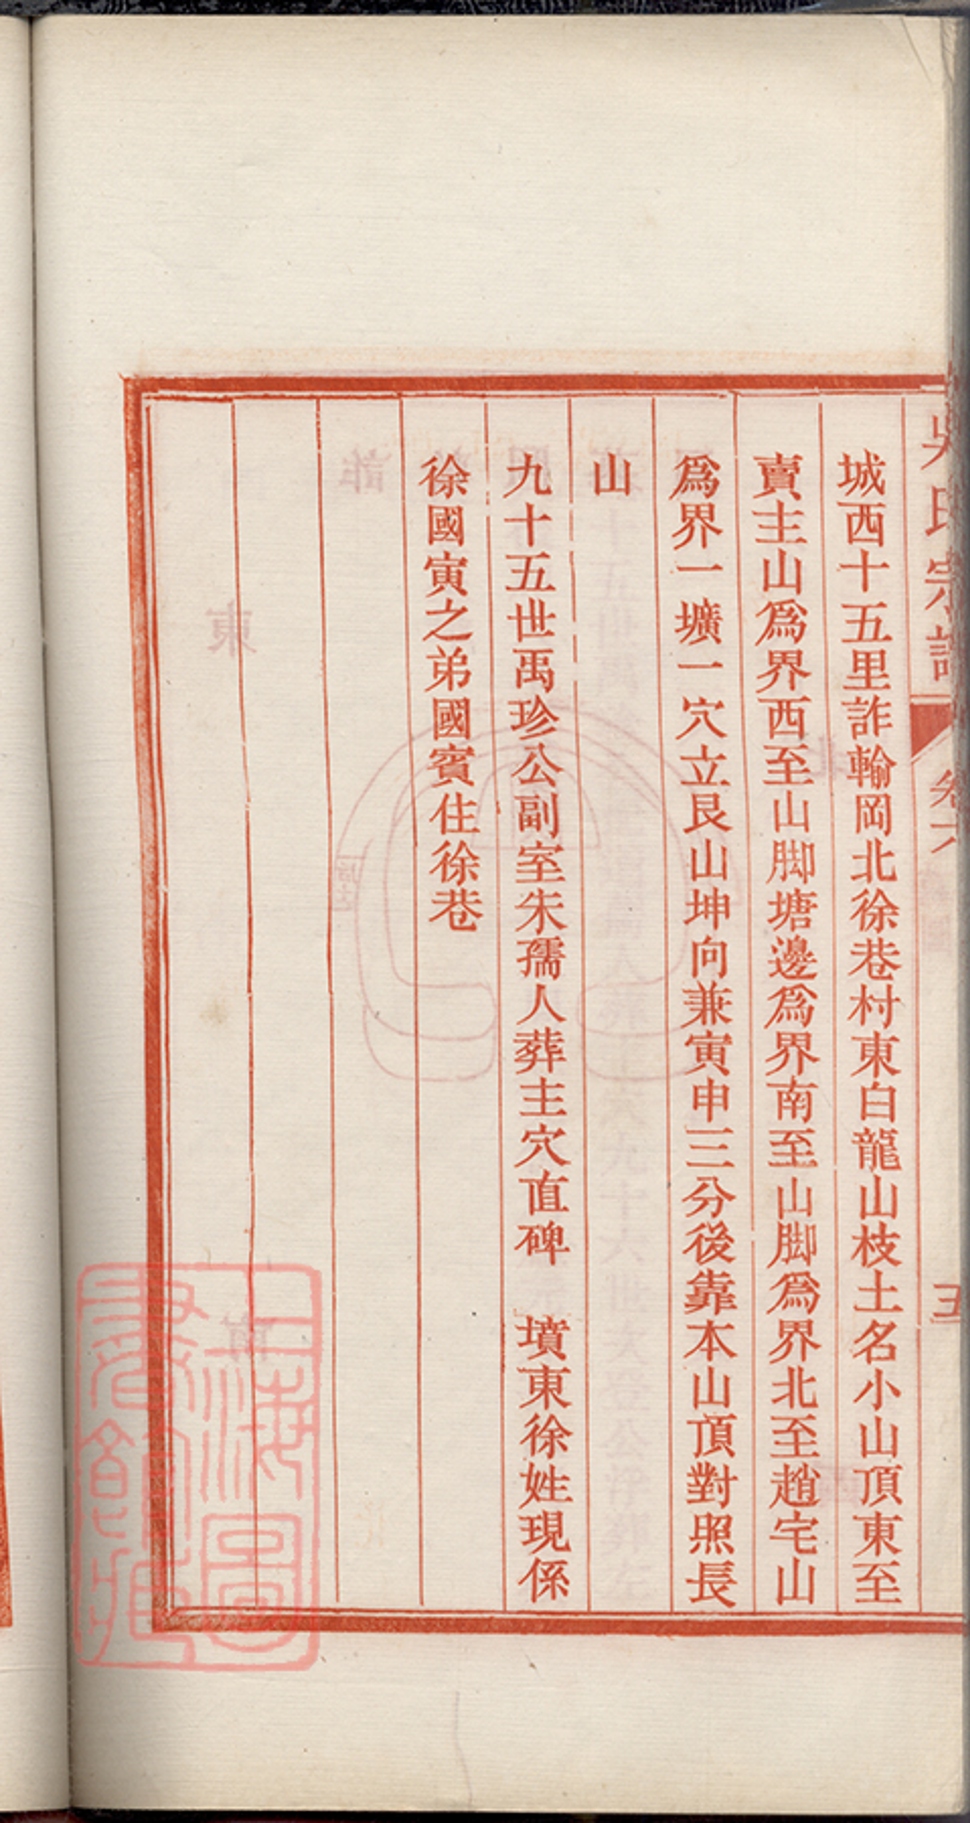 吳氏宗譜 卷六 五
城西十五里詐輸岡北徐巷村東白龍山枝土名小山頂東至
賣主山爲界西至山脚塘邊爲界南至山脚爲界北至趙宅山
爲界一壙一穴立艮山坤向兼寅申三分後靠本山頂對照長
山
九十五世禹珍公副室朱孺人葬主穴直碑 墳東徐姓現係
徐國寅之弟國賓住徐巷
上海圖書館藏